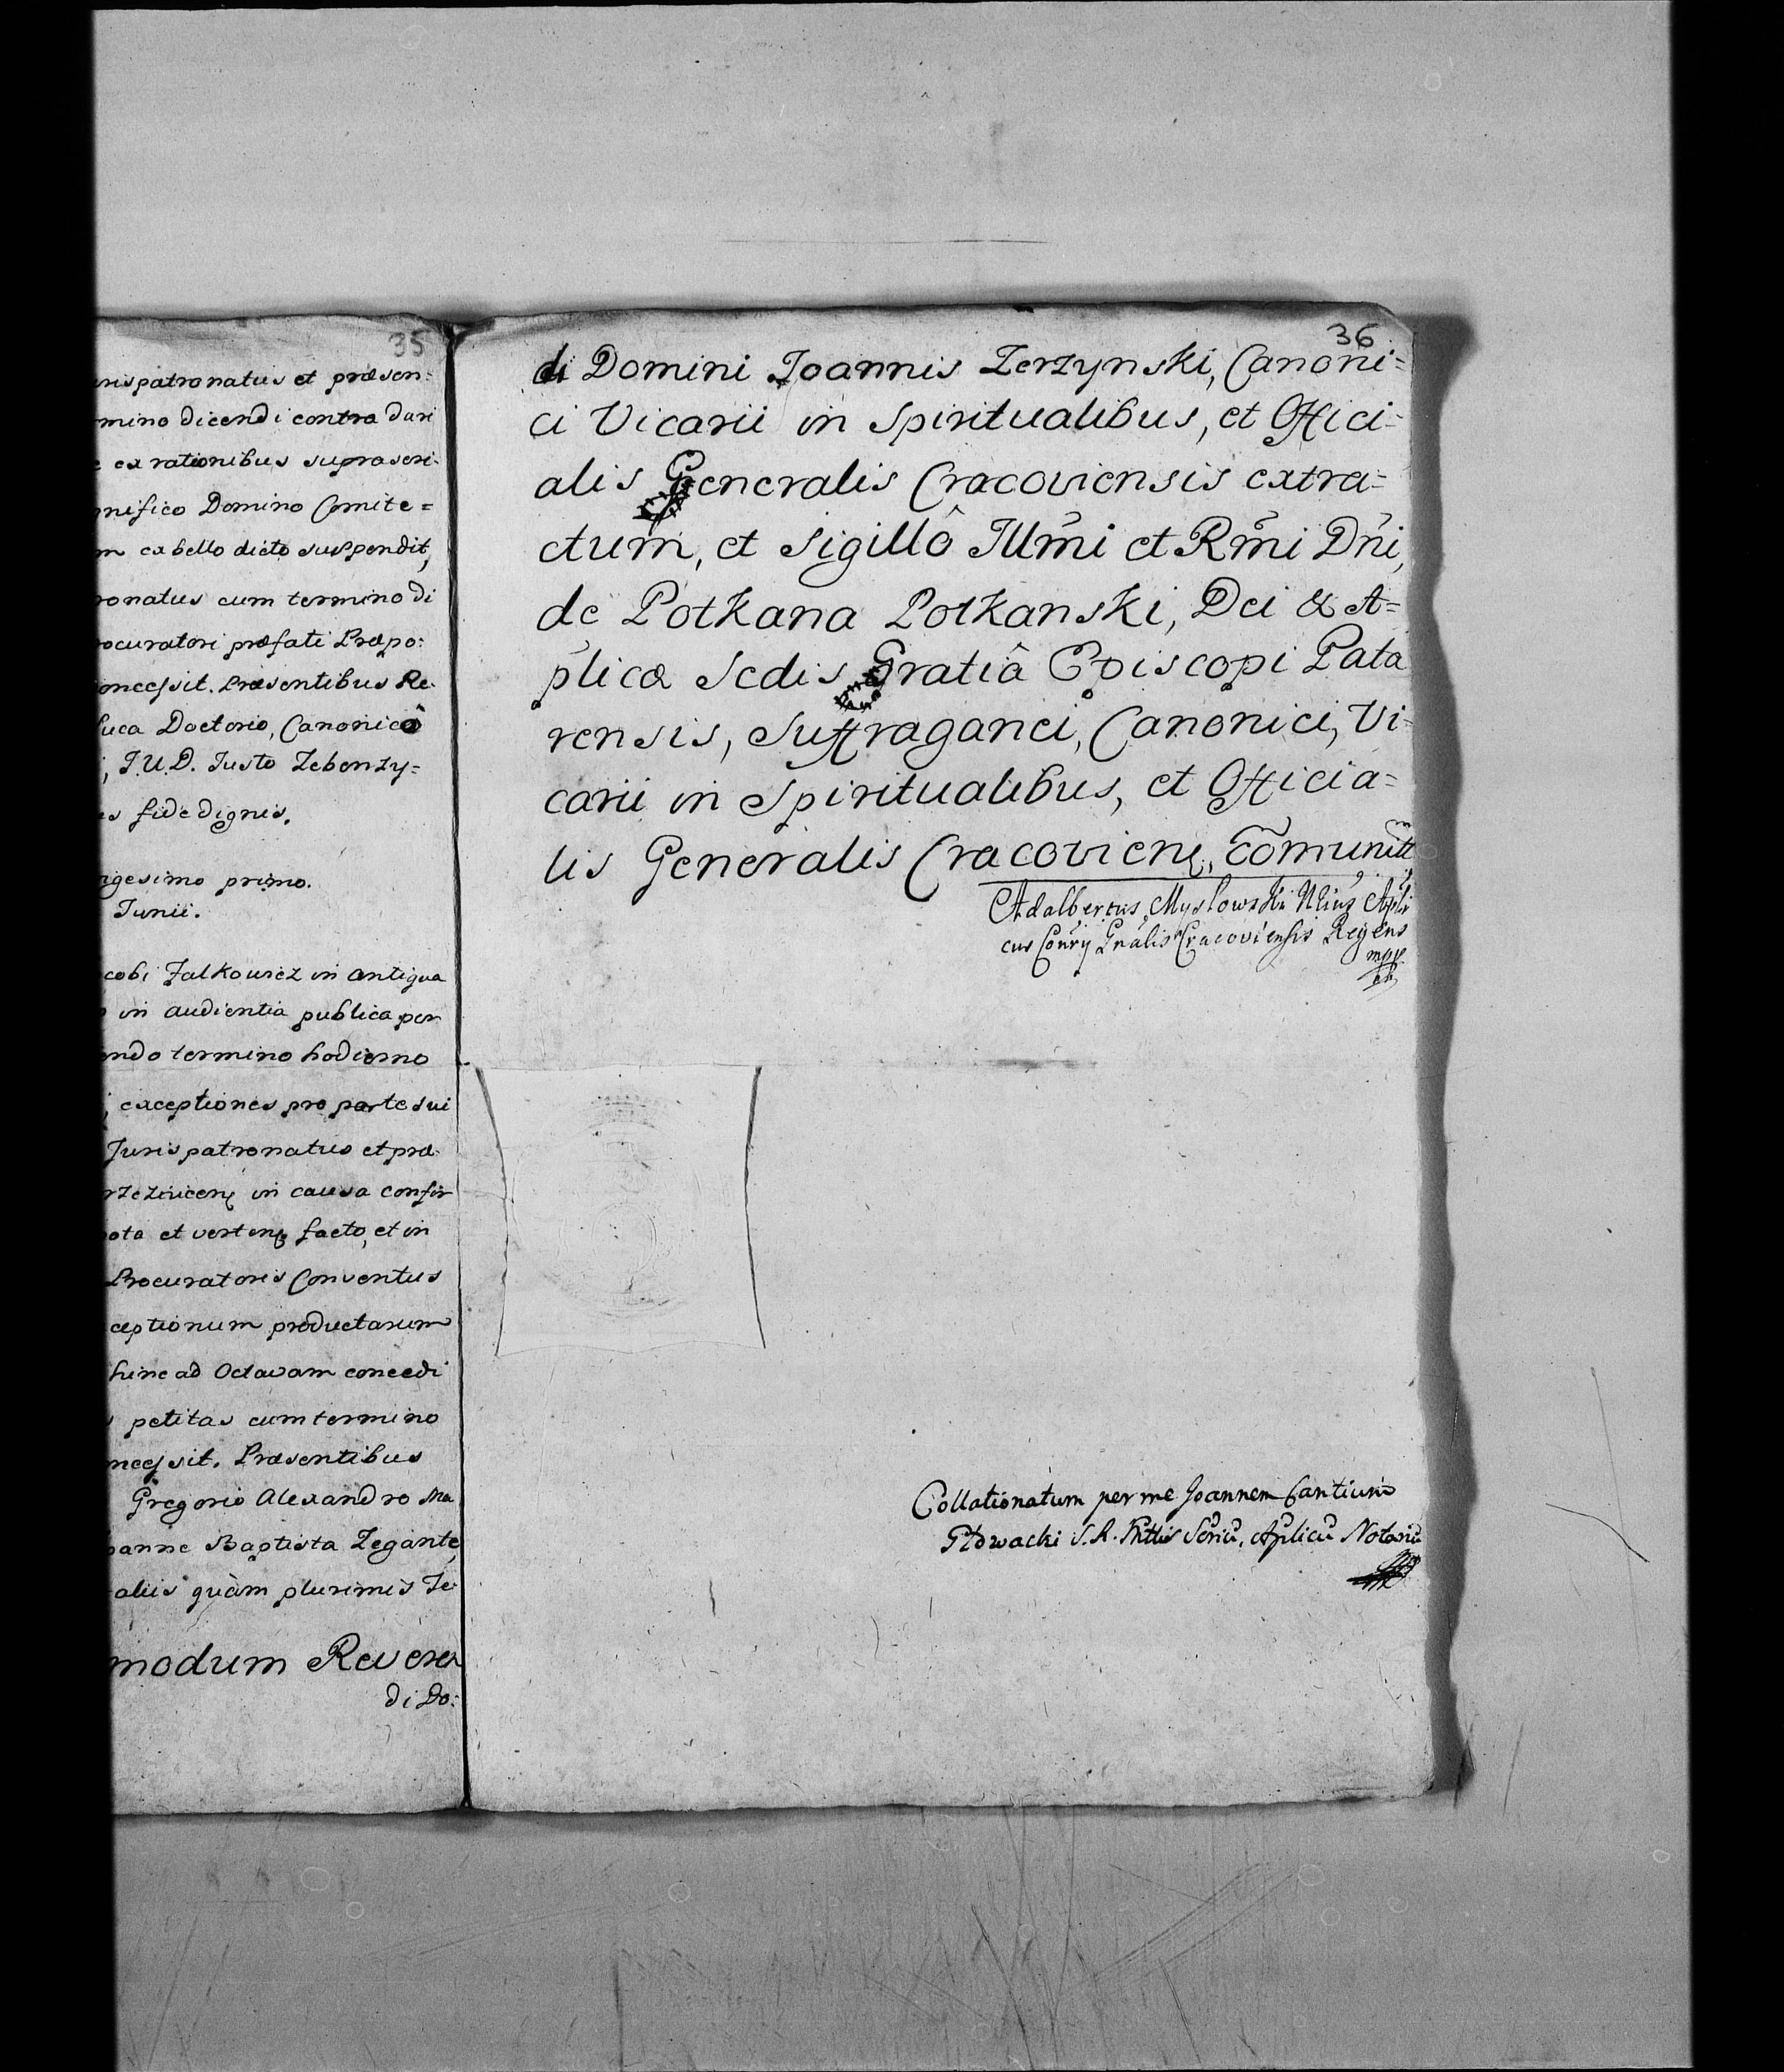 35
patronatus et præsen:
mino dicendi contra dari
ex rationibus suprascri-
nifico Domino Comite=
ex bello dicto suspendit,
onatus cum termino di
ocuratori præfati Præpo:
oncessit. Præsentibus Re-
uca Doctorio, Canonico
J.U.D. Justo Zebenzy=
fide dignis.
igesimo primo.
Junii.
cobi Falkowicz in antiqua
in audientia publica per
endo termino hodierno
exceptiones pro parte sui
Juris patronatus et præ-
in causa confir
ota et verten facto, et in
Procuratoris Conventus
ceptionum productarum
hinc ad Octavam concedi
petitas cum termino
ncessit. Præsentibus
Gregorio Alexandro Ma
oanne Baptista Zegante,
aliis quàm plurimis Te-
modum Reveren
di Do:
36
di Domini Joannis Zerzynski, Canoni=
ci Vicarii in Spiritualibus, et Offici=
alis Generalis Cracoviensis extra=
ctum, et Sigillô Illm̃i et Rm̃i Dñi,
de Potkana Potkanski, Dei & A=
plicæ Sedis Gratiâ Episcopi Pata
rensis, Suffraganei, Canonici, Vi=
carii in Spiritualibus, et Officia=
lis Generalis Cracovien, Com̃unitt
Adalbertus Myslowski Apli
cus Gnalis Cracoviensis Regens
mpp
Collationatum per me Joannem Cantium
Głowacki S. R. Aplicũ Notariũ